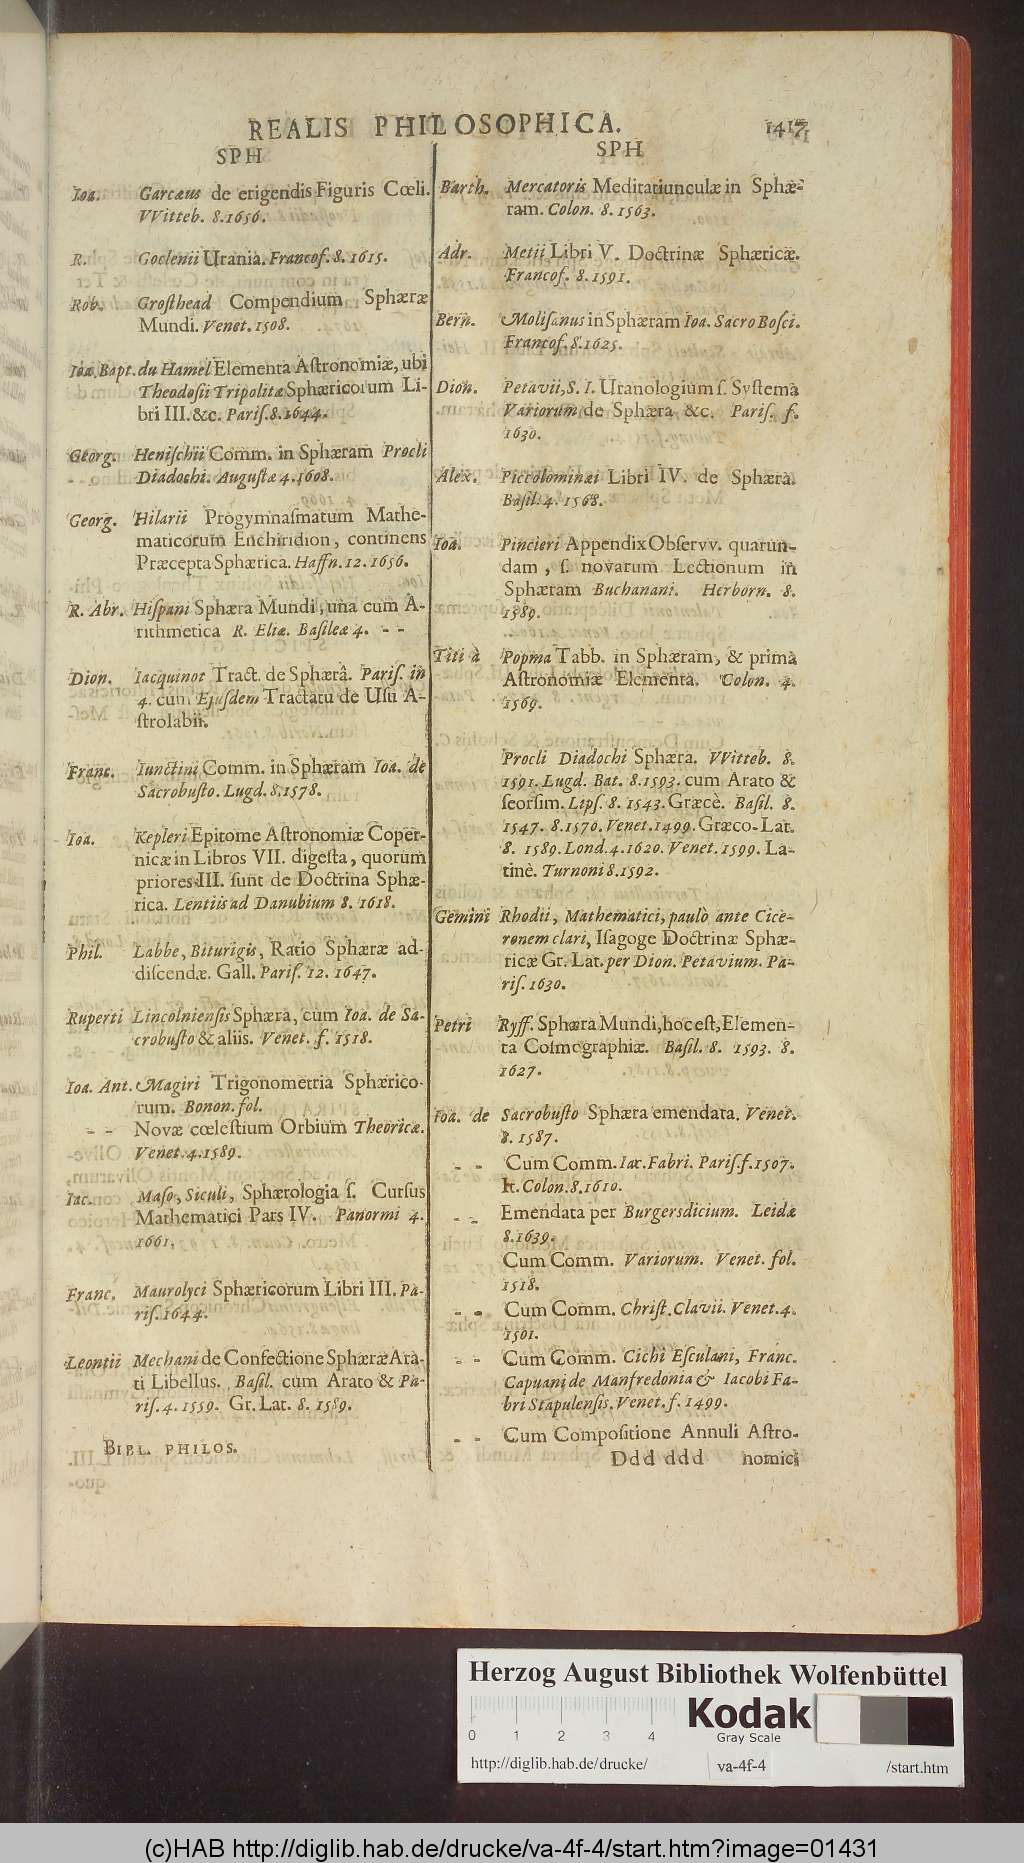 REALIS PHILOSOPHICA.
1417
SPH
Ioa. Garcæus de erigendis Figuris Cœli.
VVitteb. 8. 1656.
R. Goclenii Urania. Francof. 8. 1615.
Rob. Grosthead Compendium Sphæræ
Mundi. Venet. 1508.
Ioa. Bapt. du Hamel Elementa Aſtronomiæ, ubi
Theodoſii Tripolitæ Sphæricorum Li-
bri III. &c. Pariſ. 8. 1644.
Georg. Heniſchii Comm. in Sphæram Procli
- - Diadochi. Auguſtæ 4. 1608.
Georg. Hilarii Progymnaſmatum Mathe-
maticorum Enchiridion, continens
Præcepta Sphærica. Haffn. 12. 1656.
R. Abr. Hiſpani Sphæra Mundi, una cum A-
rithmetica R. Eliæ. Baſileæ 4. - -
Dion. Iacquinot Tract. de Sphærâ. Pariſ. in
4. cum Ejuſdem Tractatu de Uſu A-
ſtrolabii.
Franc. Iunctini Comm. in Sphæram Ioa. de
Sacrobuſto. Lugd. 8. 1578.
Ioa. Kepleri Epitome Aſtronomiæ Coper-
nicæ in Libros VII. digeſta, quorum
priores III. ſunt de Doctrina Sphæ-
rica. Lentiis ad Danubium 8. 1618.
Phil. Labbe, Biturigis, Ratio Sphæræ ad-
diſcendæ. Gall. Pariſ. 12. 1647.
Ruperti Lincolnienſis Sphæra, cum Ioa. de Sa-
crobuſto & aliis. Venet. f. 1518.
Ioa. Ant. Magiri Trigonometria Sphærico-
rum. Bonon. fol.
- - Novæ cœleſtium Orbium Theoricæ.
Venet. 4. 1589.
Iac. Maſo, Siculi, Sphærologia ſ. Curſus
Mathematici Pars IV. Panormi 4.
1661.
Franc. Maurolyci Sphæricorum Libri III. Pa-
riſ. 1644.
Leontii Mechani de Confectione Sphæræ Ara-
ti Libellus. Baſil. cum Arato & Pa-
riſ. 4. 1559. Gr. Lat. 8. 1589.
BIBL. PHILOS.
SPH
Barth. Mercatoris Meditatiunculæ in Sphæ-
ram. Colon. 8. 1563.
Adr. Metii Libri V. Doctrinæ Sphæricæ.
Francof. 8. 1591.
Bern. Moliſanus in Sphæram Ioa. Sacro Boſci.
Francof. 8. 1625.
Dion. Petavii, S. I. Uranologium ſ. Syſtema
Variorum de Sphæra &c. Pariſ. f.
1630.
Alex. Piccolominæi Libri IV. de Sphæra.
Baſil. 4. 1568.
Ioa. Pincieri Appendix Obſervv. quarun-
dam, ſ. novarum Lectionum in
Sphæram Buchanani. Herborn. 8.
1589.
Titi à Popma Tabb. in Sphæram, & prima
Aſtronomiæ Elementa. Colon. 4.
1569.
Procli Diadochi Sphæra. VVitteb. 8.
1591. Lugd. Bat. 8. 1593. cum Arato &
ſeorſim. Lipſ. 8. 1543. Græcè. Baſil. 8.
1547. 8. 1570. Venet. 1499. Græco-Lat.
8. 1589. Lond. 4. 1620. Venet. 1599. La-
tinè. Turnoni 8. 1592.
Gemini Rhodii, Mathematici, paulò ante Cice-
ronem clari, Iſagoge Doctrinæ Sphæ-
ricæ Gr. Lat. per Dion. Petavium. Pa-
riſ. 1630.
Petri Ryff. Sphæra Mundi, hoc eſt, Elemen-
ta Coſmographiæ. Baſil. 8. 1593. 8.
1627.
Ioa. de Sacrobuſto Sphæra emendata. Venet.
8. 1587.
- - Cum Comm. Iac. Fabri. Pariſ. f. 1507.
It. Colon. 8. 1610.
- - Emendata per Burgersdicium. Leidæ
8. 1639.
Cum Comm. Variorum. Venet. fol.
1518.
- - Cum Comm. Chriſt. Clavii. Venet. 4.
1501.
- - Cum Comm. Cichi Eſculani, Franc.
Capuani de Manfredonia & Iacobi Fa-
bri Stapulenſis. Venet. f. 1499.
- - Cum Compoſitione Annuli Aſtro-
Ddd ddd nomici
Herzog August Bibliothek Wolfenbüttel
0 1 2 3 4
Kodak
Gray Scale
http://diglib.hab.de/drucke/ va-4f-4 /start.htm
(c)HAB http://diglib.hab.de/drucke/va-4f-4/start.htm?image=01431